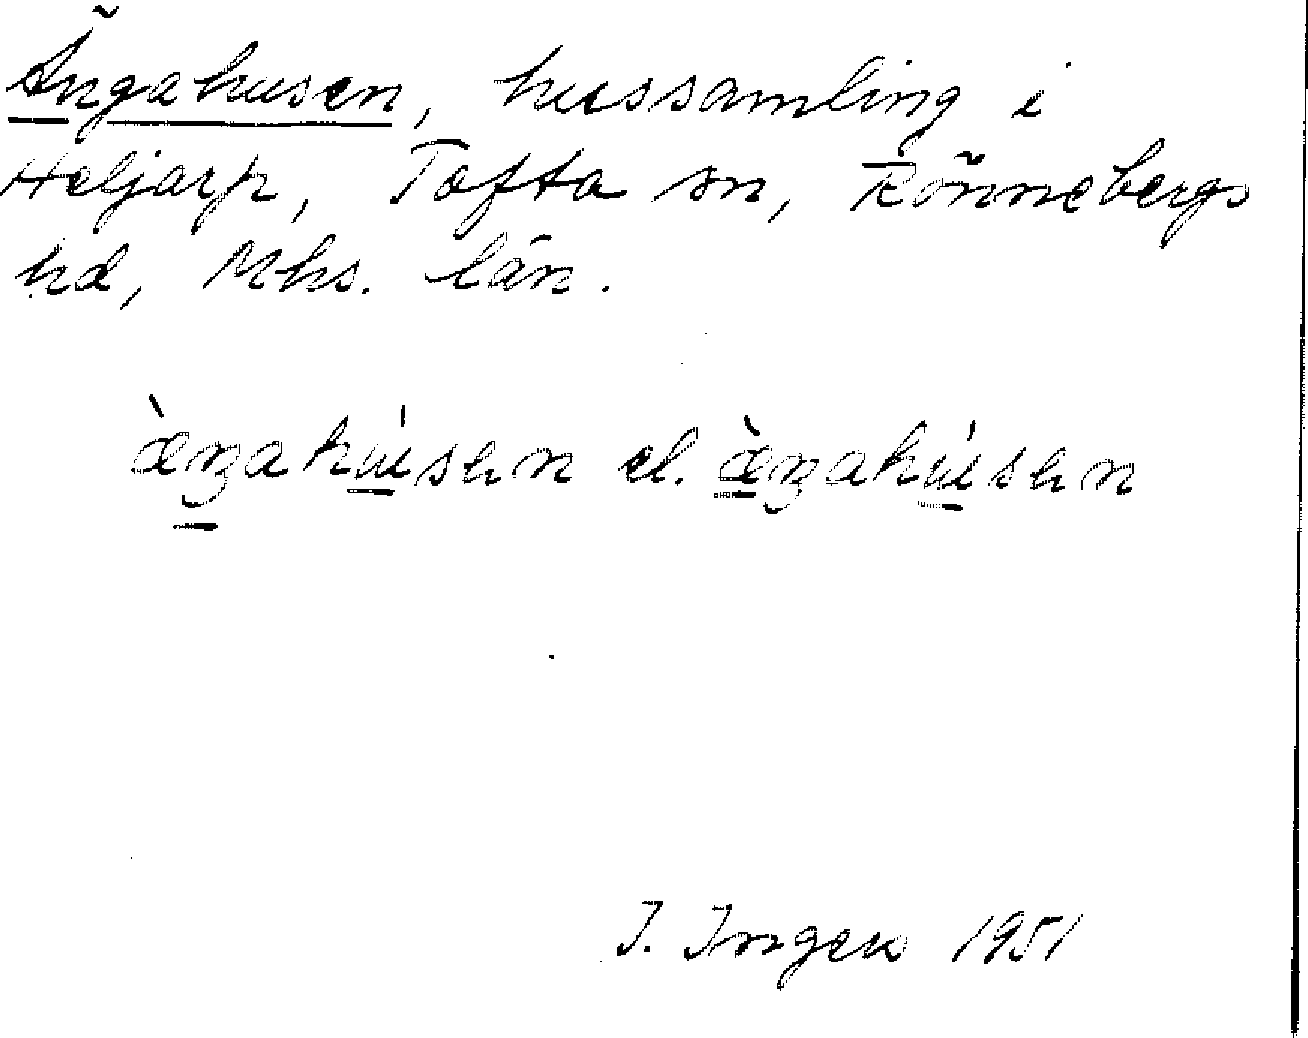 Ängahusen, hussamling i
Heljarp, Tofta sn, Rönnebergs
hd, Mhs. län.
à̈ŋahúsən el. æ̀ŋahúsən
I. Ingers 1951